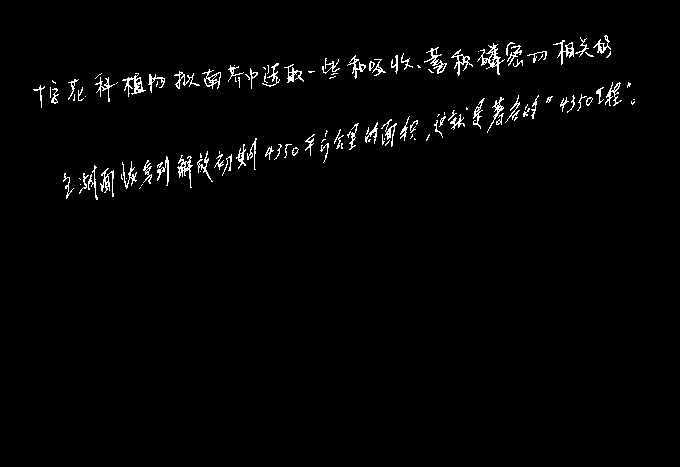 十字花科植物拟南芥中选取一些和吸收、蓄积磷密切相关的
全湖面恢复到解放初期4350平方公里的面积，这就是著名的“4350工程”。